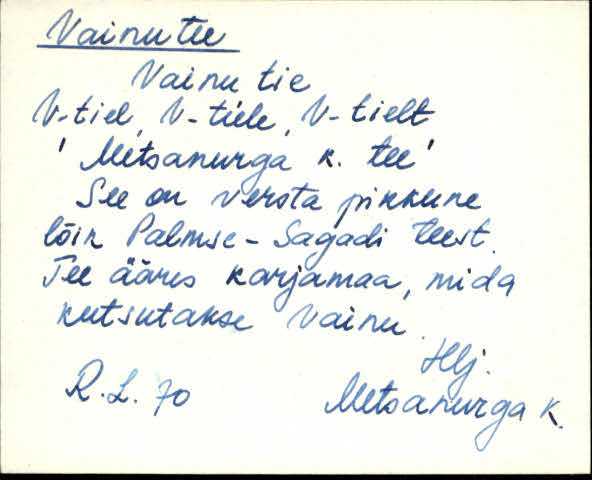 Vainu tee
Vainu tie
V-tiel, V-tiele, V-tielt
' Metsanurga k. tee '
See on versta pikkune
lõik Palmse - Sagadi teest.
Tee ääres karjamaa, mida
kutsutakse Vainu.
Hlj.
R. L. 70 Metsanurga k.